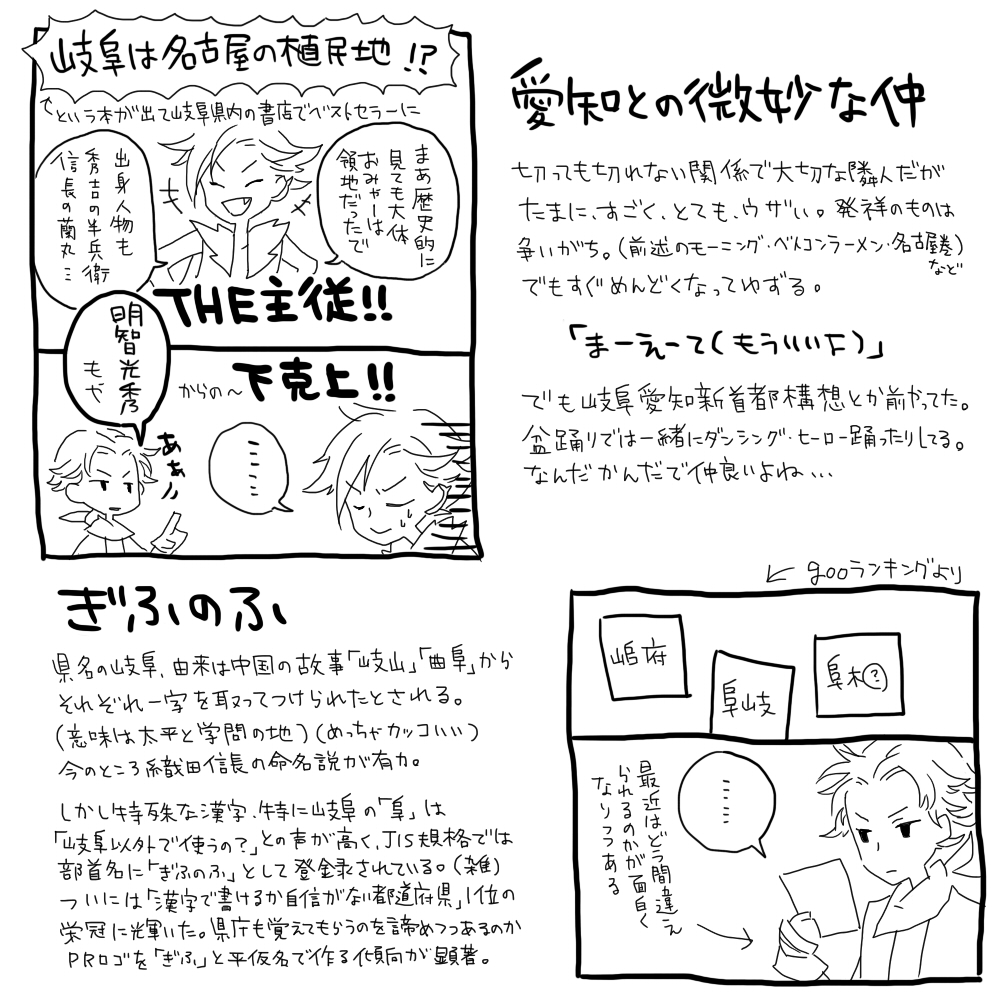 岐阜は名古屋の植民地!?
という本が出て岐阜県内の書店でベストセラーに
まあ歴史的に
見ても大体
おみゃーは
領地だったで
出身人物も
秀吉の半兵衛
信長の蘭丸…
THE主従!!
明智光秀
もや
からの～下克上!!
ああ
愛知との微妙な仲
切っても切れない関係で大切な隣人だが
たまに、すごく、とても、ウザい。発祥のものは
争いがち。(前述のモーニング・ベトコンラーメン・名古屋巻)
など
でもすぐめんどくなってゆずる。
「まーえーて(もういいて)」
でも岐阜愛知新首都構想とか前かってた。
盆踊りでは一緒にダンシング・ヒーロー踊ったりしてる。
なんだかんだで仲良いよね…
ぎふのふ
県名の岐阜、由来は中国の故事「岐山」「曲阜」から
それぞれ一字を取ってつけられたとされる。
(意味は太平と学問の地)(めっちゃカッコいい)
今のところ織田信長の命名説が有力。
しかし特殊な漢字、特に岐阜の「阜」は
「岐阜以外で使うの?」との声が高く、JIS規格では
部首名に「ぎふのふ」として登録されている。(雑)
ついには「漢字で書けるか自信がない都道府県」1位の
栄冠に輝いた。県庁も覚えてもらうのを諦めつつあるのか
PRロゴを「ぎふ」と平仮名で作る傾向が顕著。
gooランキングより
府
阜岐
阜木?
最近はどう間違え
られるのかが面白く
なりつつある